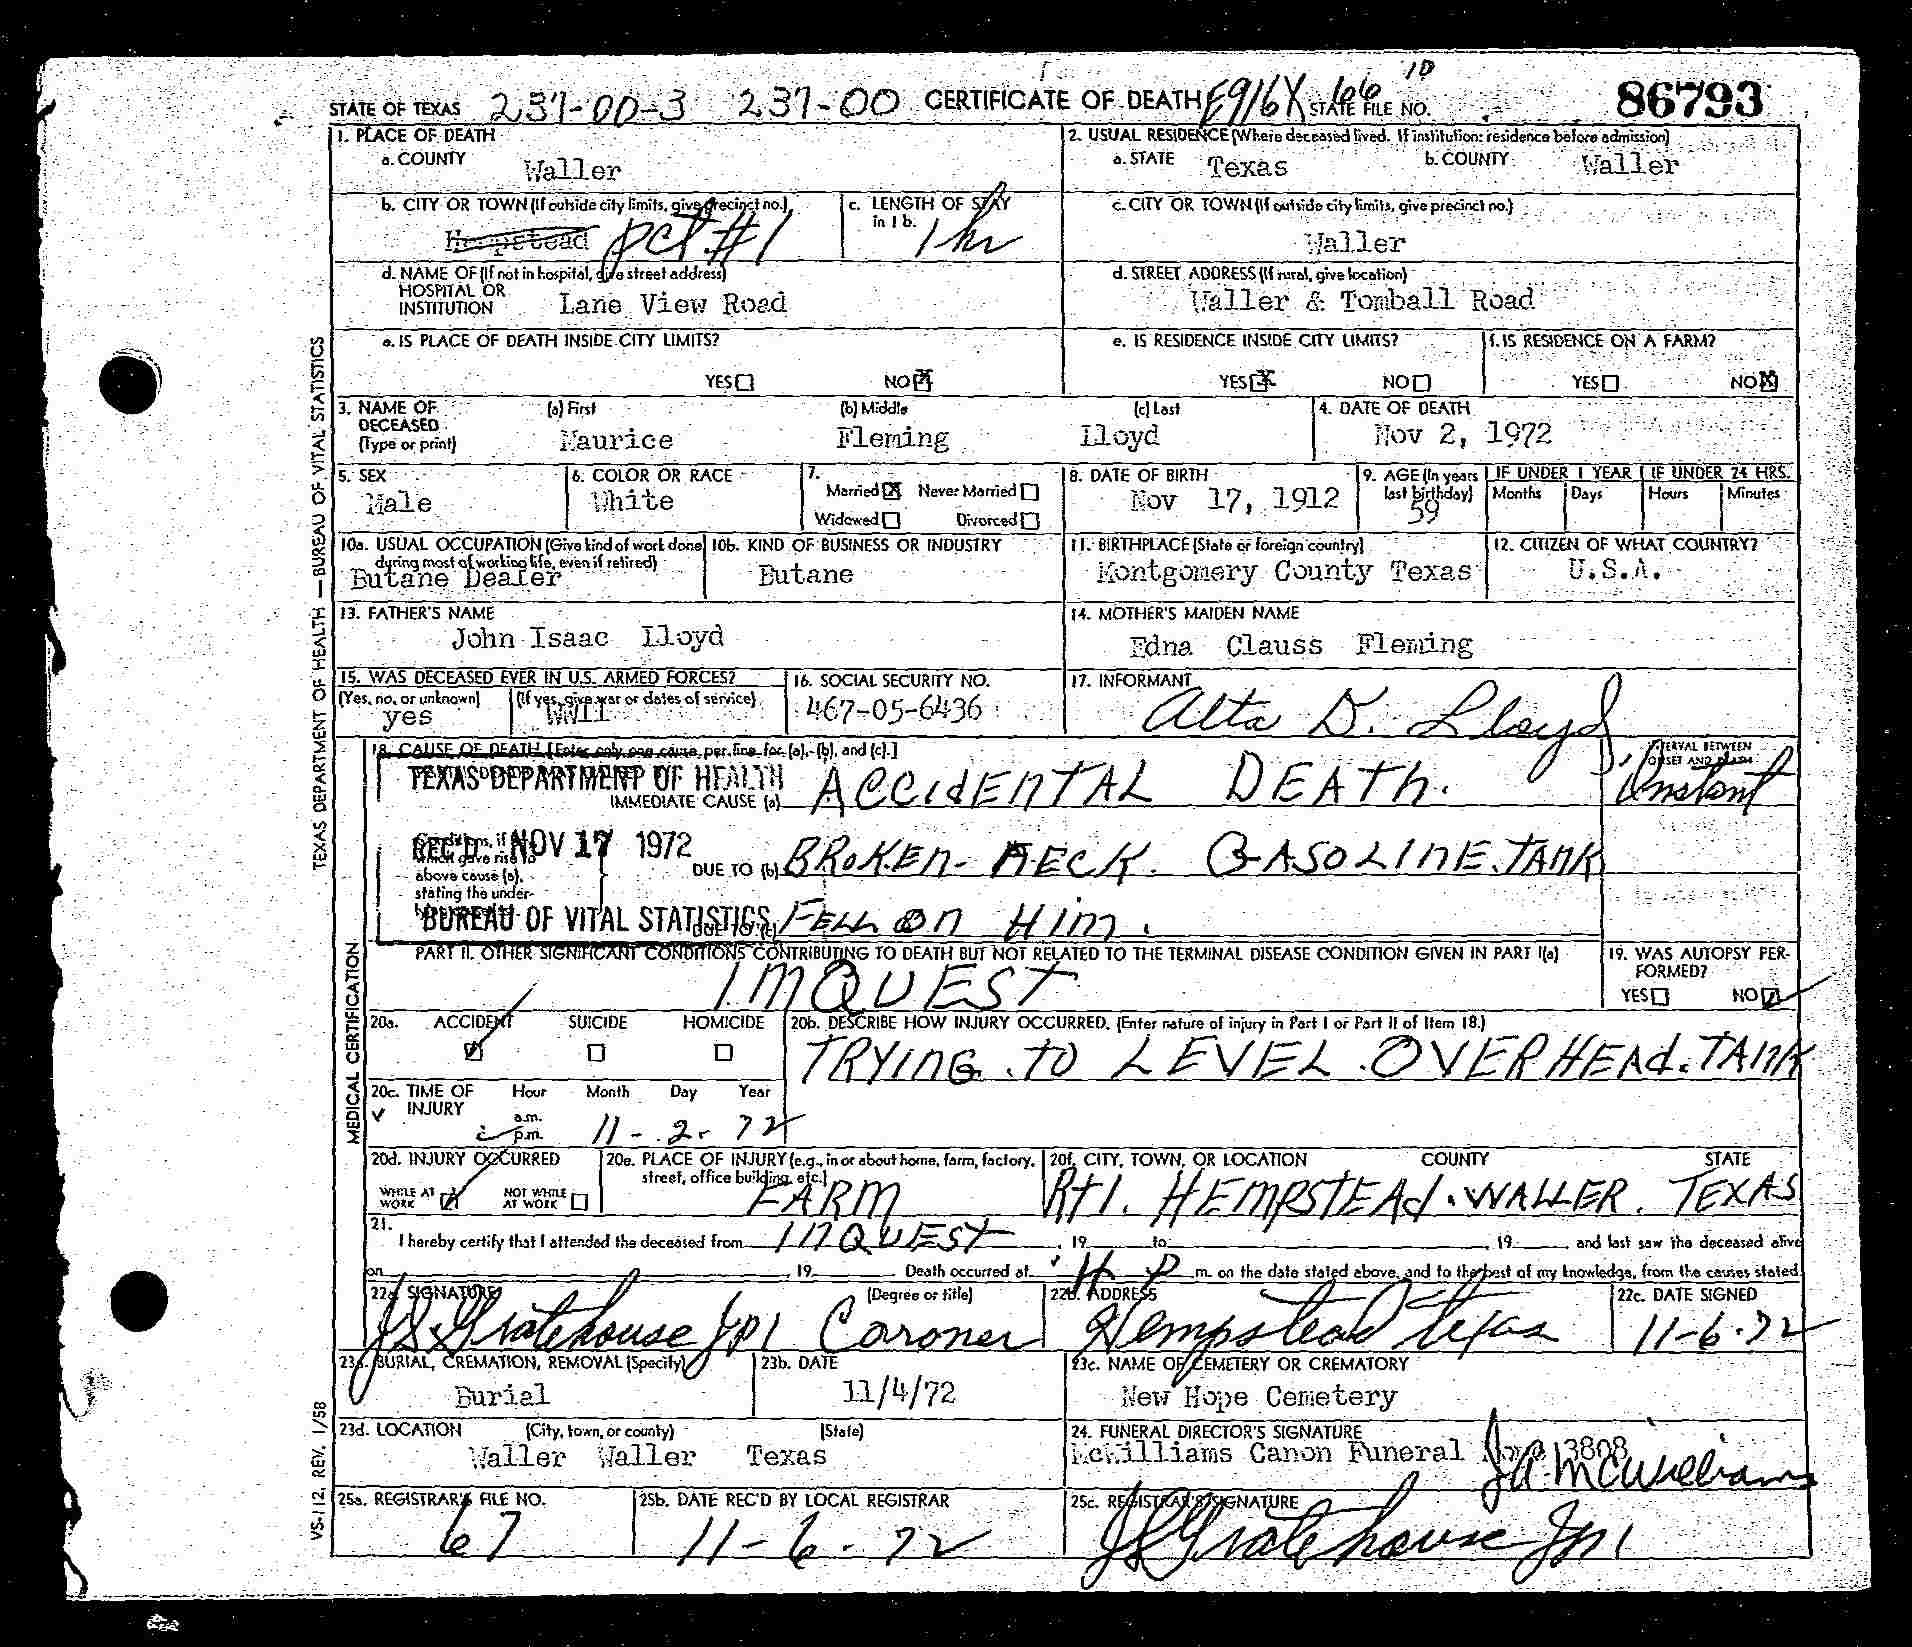 STATE OF TEXAS 237-00-3 237-00 CERTIFICATE OF DEATH E916X 66 10 STATE FILE NO. 86793
1. PLACE OF DEATH
a. COUNTY Waller
2. USUAL RESIDENCE (Where deceased lived. If institution: residence before admission)
a. STATE Texas b. COUNTY Waller
b. CITY OR TOWN (If outside city limits, give precinct no.) Hempstead pct #1
c. LENGTH OF STAY in 1 b. 1 hr
c. CITY OR TOWN (If outside city limits, give precinct no.) Waller
d. NAME OF (If not in hospital, give street address) HOSPITAL OR INSTITUTION Lane View Road
d. STREET ADDRESS (If rural, give location) Waller & Tomball Road
e. IS PLACE OF DEATH INSIDE CITY LIMITS? YES NO X
e. IS RESIDENCE INSIDE CITY LIMITS? YES X NO
f. IS RESIDENCE ON A FARM? YES NO X
3. NAME OF DECEASED (Type or print) (a) First (b) Middle (c) Last
Maurice Fleming Lloyd
4. DATE OF DEATH Nov 2, 1972
5. SEX Male
6. COLOR OR RACE White
7. Married X Never Married Widowed Divorced
8. DATE OF BIRTH Nov 17, 1912
9. AGE (In years last birthday) 59
IF UNDER 1 YEAR Months Days
IF UNDER 24 HRS. Hours Minutes
10a. USUAL OCCUPATION (Give kind of work done during most of working life, even if retired) Butane Dealer
10b. KIND OF BUSINESS OR INDUSTRY Butane
11. BIRTHPLACE (State or foreign country) Montgomery County Texas
12. CITIZEN OF WHAT COUNTRY? U.S.A.
13. FATHER'S NAME John Isaac Lloyd
14. MOTHER'S MAIDEN NAME Edna Clauss Fleming
15. WAS DECEASED EVER IN U.S. ARMED FORCES? (Yes, no, or unknown) yes (If yes, give war or dates of service) WWII
16. SOCIAL SECURITY NO. 467-05-6436
17. INFORMANT Alta D. Lloyd
18. CAUSE OF DEATH [Enter only one cause per line for (a), (b), and (c).]
INTERVAL BETWEEN ONSET AND DEATH
TEXAS DEPARTMENT OF HEALTH
IMMEDIATE CAUSE (a) ACCIDENTAL DEATH. Instant
REC'D NOV 17 1972
Conditions, if which gave rise to above cause (a), stating the under-
DUE TO (b) BROKEN-NECK. GASOLINE.TANK
BUREAU OF VITAL STATISTICS
DUE TO (c) FELL ON HIM.
PART II. OTHER SIGNIFICANT CONDITIONS CONTRIBUTING TO DEATH BUT NOT RELATED TO THE TERMINAL DISEASE CONDITION GIVEN IN PART I(a)
INQUEST
19. WAS AUTOPSY PERFORMED? YES NO
20a. ACCIDENT SUICIDE HOMICIDE
20b. DESCRIBE HOW INJURY OCCURRED. (Enter nature of injury in Part I or Part II of Item 18.)
TRYING TO LEVEL OVERHEAD.TANK
20c. TIME OF INJURY Hour a.m. p.m. Month Day Year 11-2-72
20d. INJURY OCCURRED WHILE AT WORK NOT WHILE AT WORK
20e. PLACE OF INJURY (e.g., in or about home, farm, factory, street, office building, etc.) FARM
20f. CITY, TOWN, OR LOCATION COUNTY STATE
Rt1. HEMPSTEAD.WALLER. TEXAS
21. I hereby certify that I attended the deceased from INQUEST, 19 to , 19 and last saw the deceased alive
on , 19 Death occurred at 4 P m. on the date stated above, and to the best of my knowledge, from the causes stated.
22a. SIGNATURE (Degree or title) J S Gratehouse JP1 Coroner
22b. ADDRESS Hempstead Texas
22c. DATE SIGNED 11-6-72
23a. BURIAL, CREMATION, REMOVAL (Specify) Burial
23b. DATE 11/4/72
23c. NAME OF CEMETERY OR CREMATORY New Hope Cemetery
23d. LOCATION (City, town, or county) (State) Waller Waller Texas
24. FUNERAL DIRECTOR'S SIGNATURE McWilliams Canon Funeral 3808 J A McWilliams
25a. REGISTRAR'S FILE NO. 67
25b. DATE REC'D BY LOCAL REGISTRAR 11-6-72
25c. REGISTRAR'S SIGNATURE J S Gratehouse JP1
TEXAS DEPARTMENT OF HEALTH — BUREAU OF VITAL STATISTICS
MEDICAL CERTIFICATION
VS-112. REV. 1/58